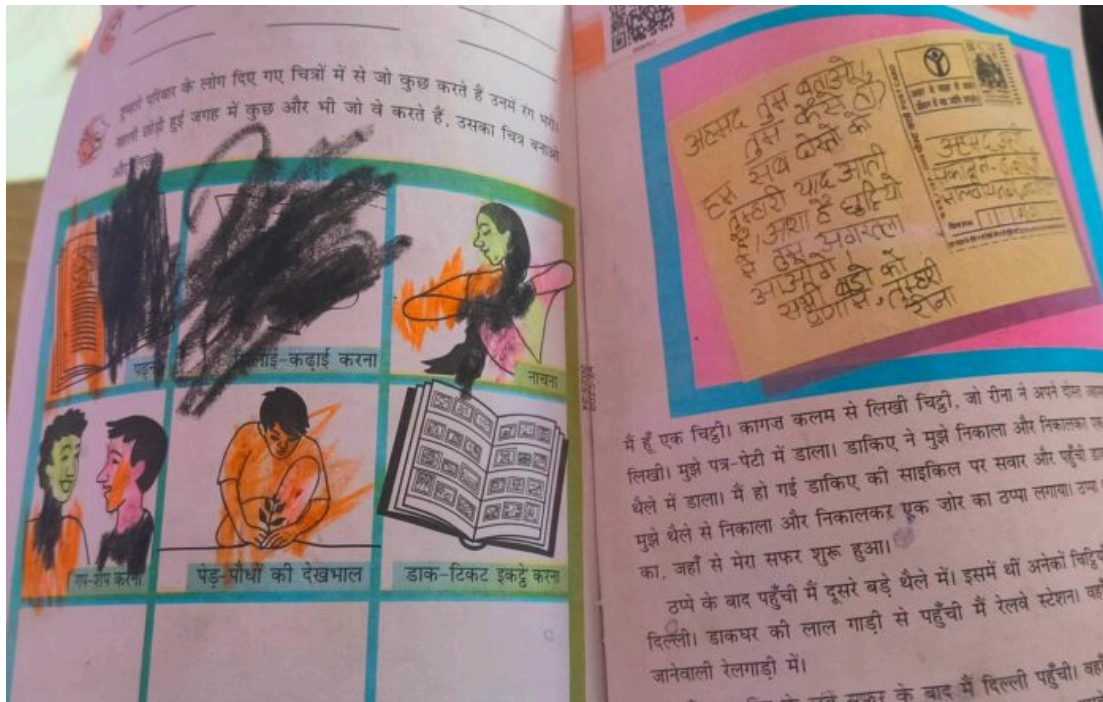 तुम्हारे परिवार के लोग दिए गए चित्रों में से जो कुछ करते हैं उनमें रंग भरो।
खाली छोड़ी हुई जगह में कुछ और भी जो वे करते हैं, उसका चित्र बनाओ
और
सिलाई-कढ़ाई करना
नाचना
गप-शप करना
पेड़-पौधों की देखभाल
डाक-टिकट इकट्ठे करना
अहमद तुम बताओ।
तुम कैसे हो?
हम सब दोस्तों को
तुम्हारी याद आती
है। आशा है छुट्टियों
में तुम अगरतला
आओगे।
सभी बड़ों को
प्रणाम, तुम्हारी
रीना
मैं हूँ एक चिट्ठी। कागज़ कलम से लिखी चिट्ठी, जो रीना ने अपने दोस्त
लिखी। मुझे पत्र-पेटी में डाला। डाकिए ने मुझे निकाला और निकालकर एक
थैले में डाला। मैं हो गई डाकिए की साइकिल पर सवार और पहुँची
मुझे थैले से निकाला और निकालकर एक जोर का ठप्पा लगाया। ठप्पा
का, जहाँ से मेरा सफर शुरू हुआ।
ठप्पे के बाद पहुँची मैं दूसरे बड़े थैले में। इसमें थीं अनेकों चिट्ठियाँ
दिल्ली। डाकघर की लाल गाड़ी से पहुँची मैं रेलवे स्टेशन। वहाँ
जानेवाली रेलगाड़ी में।
सफर के बाद मैं दिल्ली पहुँची। वहाँ